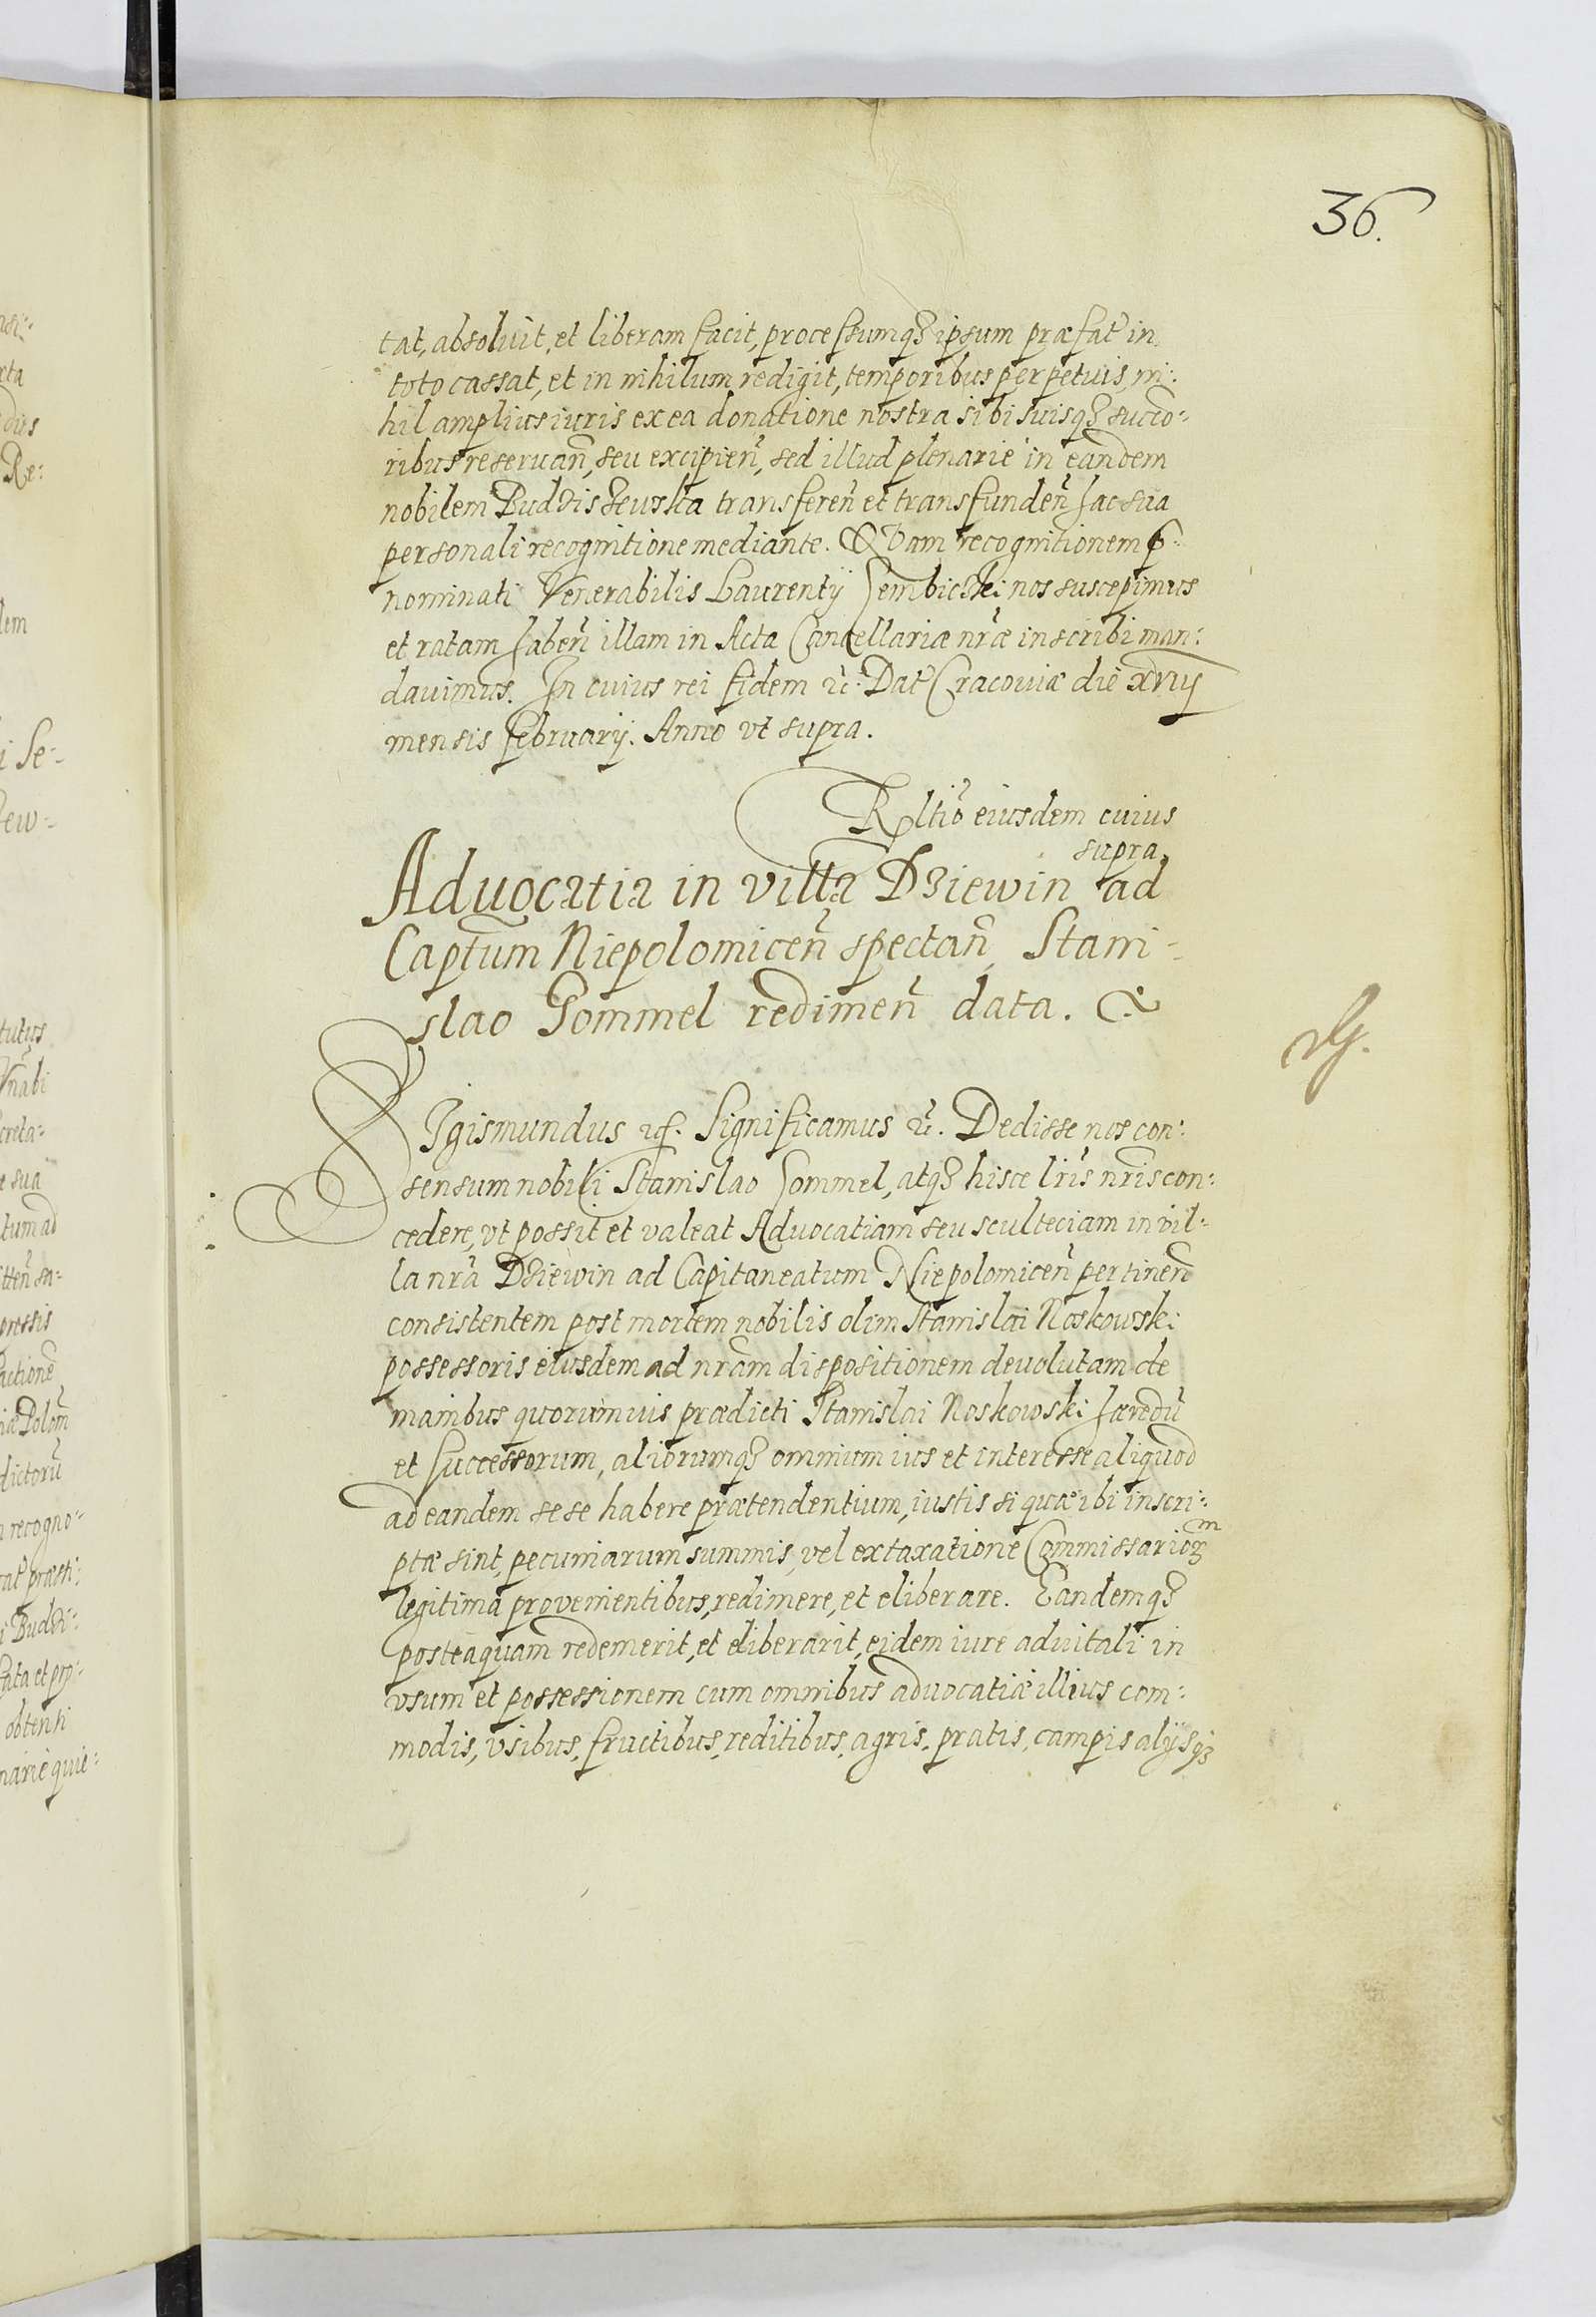 36.
tat, absoluit, et liberam facit, processumq₃ ipsum præfat̃ in
toto cassat, et in nihilum redigit, temporibus perpetuis ni:
hil amplius iuris ex ea donatione nostra sibi suisq₃ succo-
ribus reseruan̄, seu excipien̄, sed illud plenarie in eandem
nobilem Budziszewska transferen̄ et transfunden̄ hac sua
personali recognitione mediante. Quam recognitionem
nominati Venerabilis Laurentij Gembiczki nos suscepimus
et ratam haben̄ illam in Acta Cancellariæ nr̄æ inscribi man:
dauimus. In cuius rei fidem ec̄: Dat̃ Cracouiæ die xviij
mensis february. Anno vt supra.
Rl̄tio eiusdem cuius
supra.
Aduocatia in villa Dziewin ad
Capt̄um Niepolomicen̄ spectan̄ Stani-
slao Gommel redimen̄ data.
Sigismundus Significamus ec̄. Dedisse nos con:
sensum nobili Stanislao Gommel, atq₃ hisce lr̄is nr̄is con:
cedere, vt possit et valeat Aduocatiam seu sculteciam in vil:
la nr̄a Dziewin ad Capitaneatum Niepolomicen̄ pertinen̄
consistentem post mortem nobilis olim Stanislai Noskowski
possessoris eiusdem ad nr̄am dispositionem deuolutam de
manibus quorumuis prædicti Stanislai Noskowski hæredū
et successorum, aliorumq₃ omnium ius et interesse aliquod
ad eandem sese habere prætendentium, iustis si quæ ibi inscri:
ptæ sint, pecuniarum summis, vel ex taxatione Commissarioᵐ
legitima prouenientibus, redimere, et eliberare. Eandemq₃
posteaquam redemerit, et eliberarit, eidem iure aduitali in
vsum et possessionem cum omnibus aduocatiæ illius com:
modis, vsibus, fructibus, reditibus, agris, pratis, campis alijsq₃